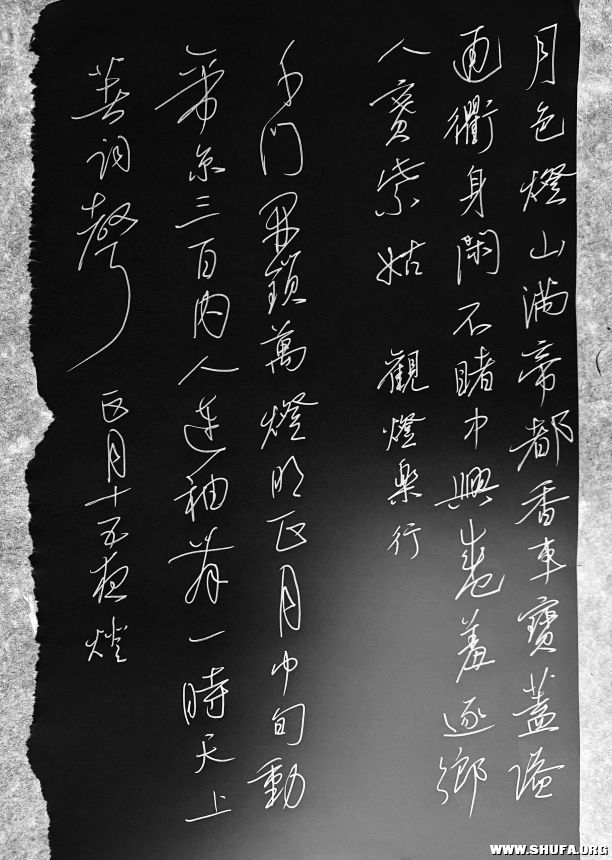 月色燈山满帝都香車寶蓋隘
通衢身閑不睹中興盛羞逐鄉
人賽紫姑 觀燈楽行
千門開鎖萬燈明正月中旬動
帝京三百內人連袖舞一時天上
著词聲 正月十五夜燈
WWW.SHUFA.ORG